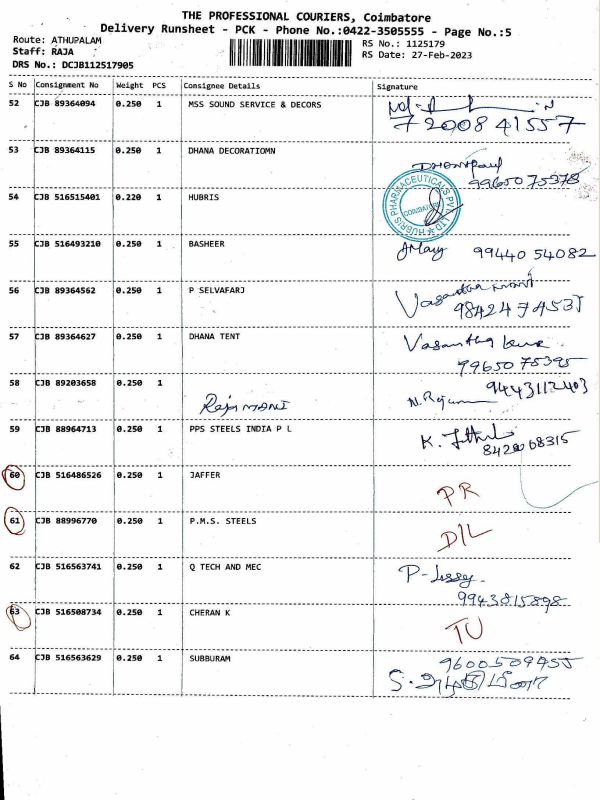 THE PROFESSIONAL COURIERS, Coimbatore
Delivery Runsheet - PCK - Phone No.:0422-3505555 - Page No.:5
Route: ATHUPALAM
Staff: RAJA
DRS No.: DCJB112517905
RS No.: 1125179
RS Date: 27-Feb-2023
S No Consignment No Weight PCS Consignee Details Signature
52 CJB 89364094 0.250 1 MSS SOUND SERVICE & DECORS
7200841557
53 CJB 89364115 0.250 1 DHANA DECORATIOMN
9965075378
54 CJB 516515401 0.220 1 HUBRIS
HUBRIS PHARMACEUTICALS PVT. LTD
COIMBATORE
55 CJB 516493210 0.250 1 BASHEER
99440 54082
56 CJB 89364562 0.250 1 P SELVAFARJ
57 CJB 89364627 0.250 1 DHANA TENT
9965075395
58 CJB 89203658 0.250 1
Raja MANI
9443112403
59 CJB 88964713 0.250 1 PPS STEELS INDIA P L
8420068315
60 CJB 516486526 0.250 1 JAFFER
PR
61 CJB 88996770 0.250 1 P.M.S. STEELS
D/L
62 CJB 516563741 0.250 1 Q TECH AND MEC
9943815898
63 CJB 516508734 0.250 1 CHERAN K
TU
64 CJB 516563629 0.250 1 SUBBURAM